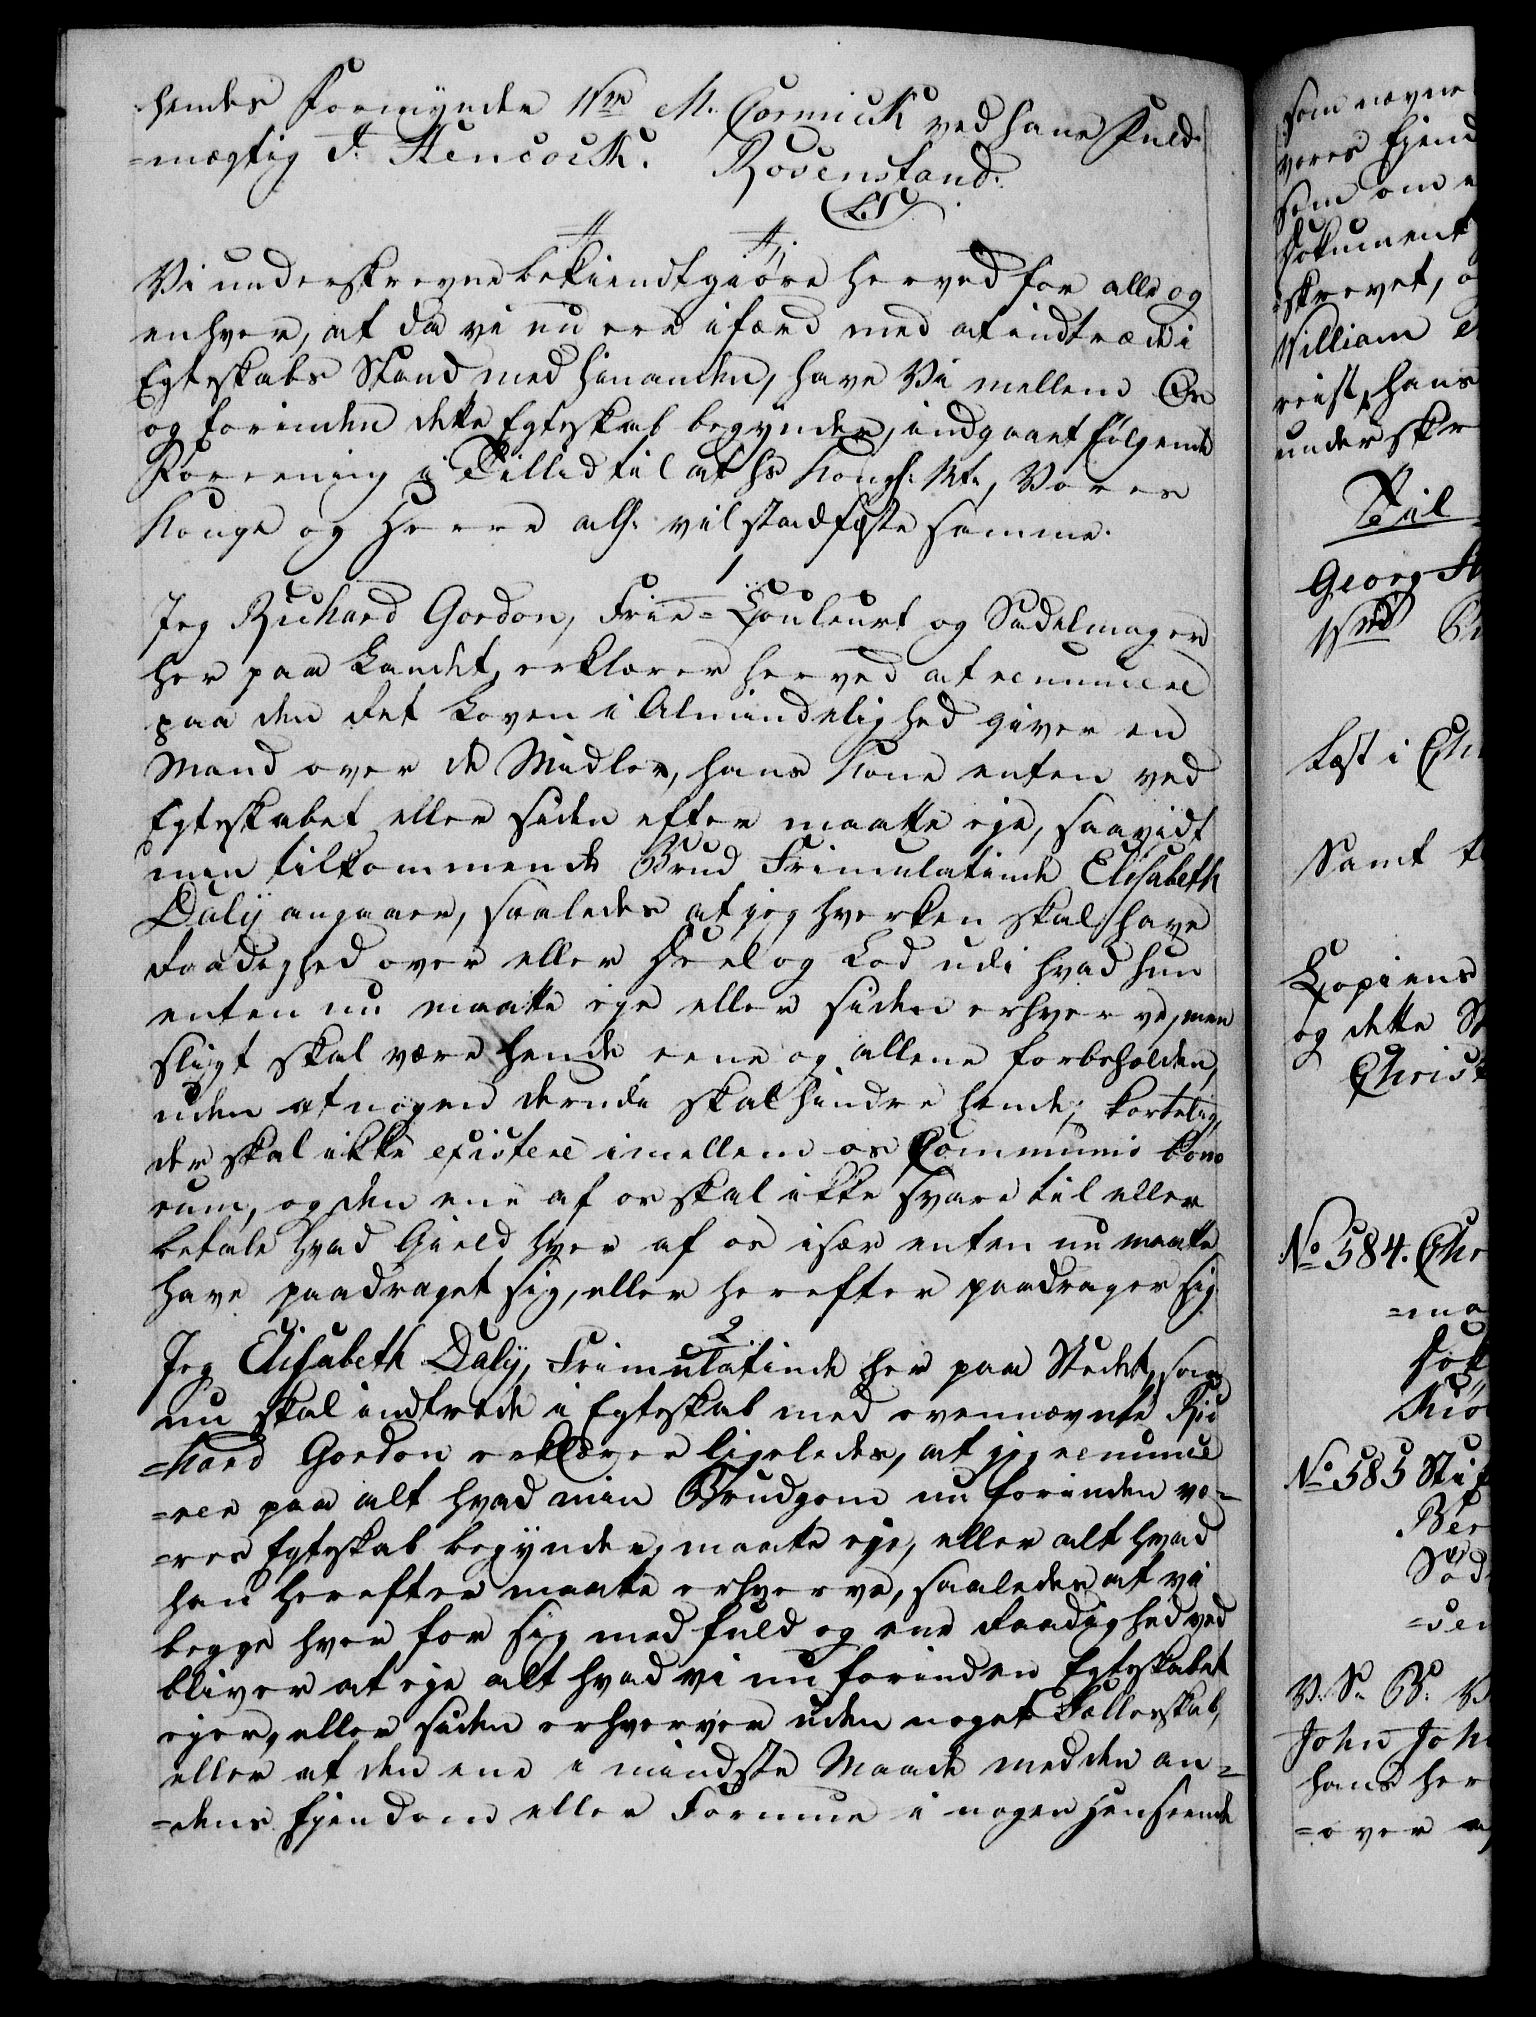 hendes Formynder Wm M. Cormick ved hans Fuld¬
=mægtig F. Hencock. Rosenstand.
(L.S.)
A.
Vi underskrevne bekiendtgiöre herved for alle og
enhver, at da vi nu ere ifærd med at indtræde i
Egteskabs Stand med hinanden, have Vi mellem Os
og forinden dette Egteskab begynder, indgaaet følgende
Foreening i Tillid til at hs Kongl: Mt., Vores
Konge og Herre allh: vil stadfæste samme.
1
Jeg Richard Gordon, Frie=Couleurt og Sadelmager
her paa Landet, erklærer herved at renuncere
paa den Ret Loven i Almindelighed giver en
Mand over de Midler, hans Kone enten ved
Egteskabet eller siden efter maatte eje, saavidt
min tilkommende Brud Frimulatinde Elisabeth
Dalÿ angaaer, saaledes at jeg hverken skal have
Raadighed over eller Deel og Lod udi hvad hun
enten nu maatte eje eller siden erhverve, men
sligt skal være hende eene og allene forbeholden,
uden at nogen derudi skal hindre hende; kortelig,
der skal ikke existere imellem os Communio bono
rum, og den ene af os skal ikke svare til eller
betale hvad Gield hver af os især enten nu maatte
have paadraget sig, eller herefter paadrager sig
2
Jeg Elisabeth Dalÿ, Frimulatinde her paa Stedet, som
nu skal indtræde i Egteskab med ovennævnte Ric
=hard Gordon erklærer ligeledes, at jeg renunce
=rer paa alt hvad min Brudgom nu forinden vo=
=res Egteskab begynder, maatte eje, eller alt hvad
han herefter maatte erhverve, saaledes at vi
begge hver for sig med fuld og ene Raadighed ved
bliver at eje alt hvad vi nu forinden Egteskabet
ejer, eller siden erhverver uden noget Fællesskab,
eller at den ene i mindste Maade med den an=
=dens Ejendom eller Formue i nogen Henseende
som nævne
vores Ejend
Som om
Dokument
skrevet, o
William
reist, hans
underskr
Til
Georg
Wm
Læst i Chr
Samt t
Copiens
og dette St
Christ
No 584. Chr
=ma
Kiö
No 585 Stif
Ber
Söd
=sen
V. S. B. V
John Joh
hans her
=over